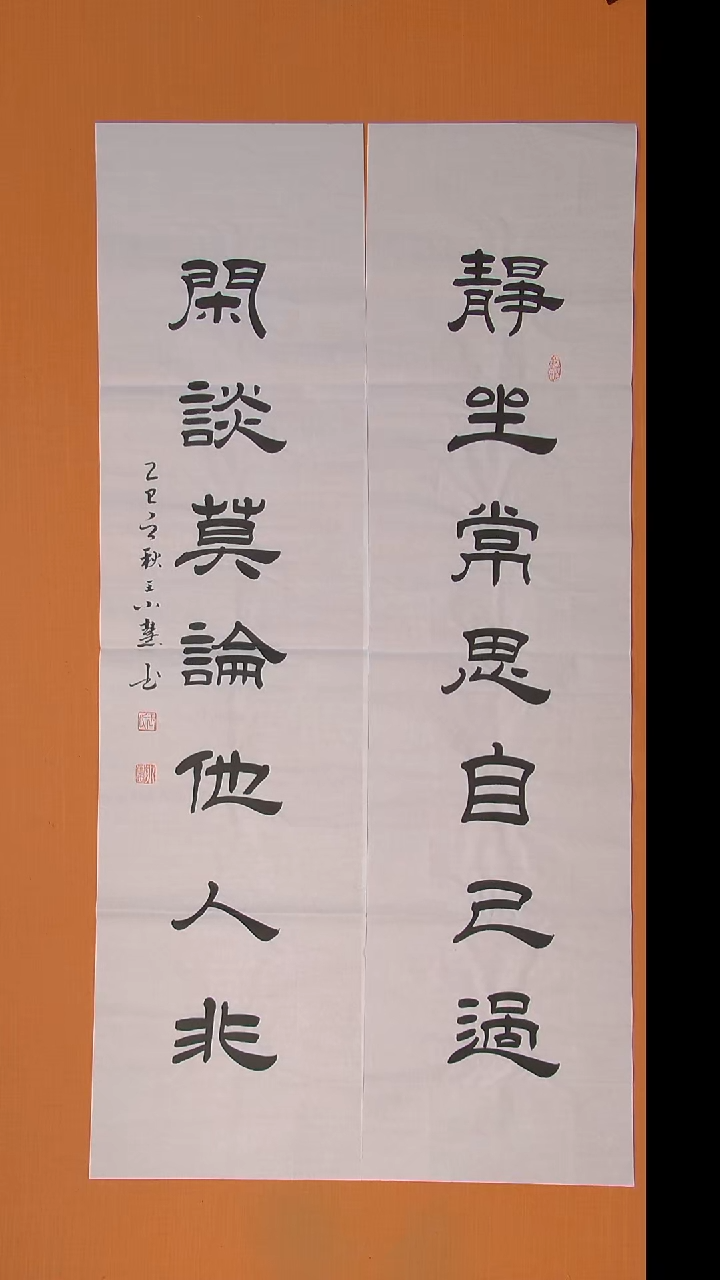 靜坐常思自己過
閑談莫論他人非
乙巳之秋王小慧书